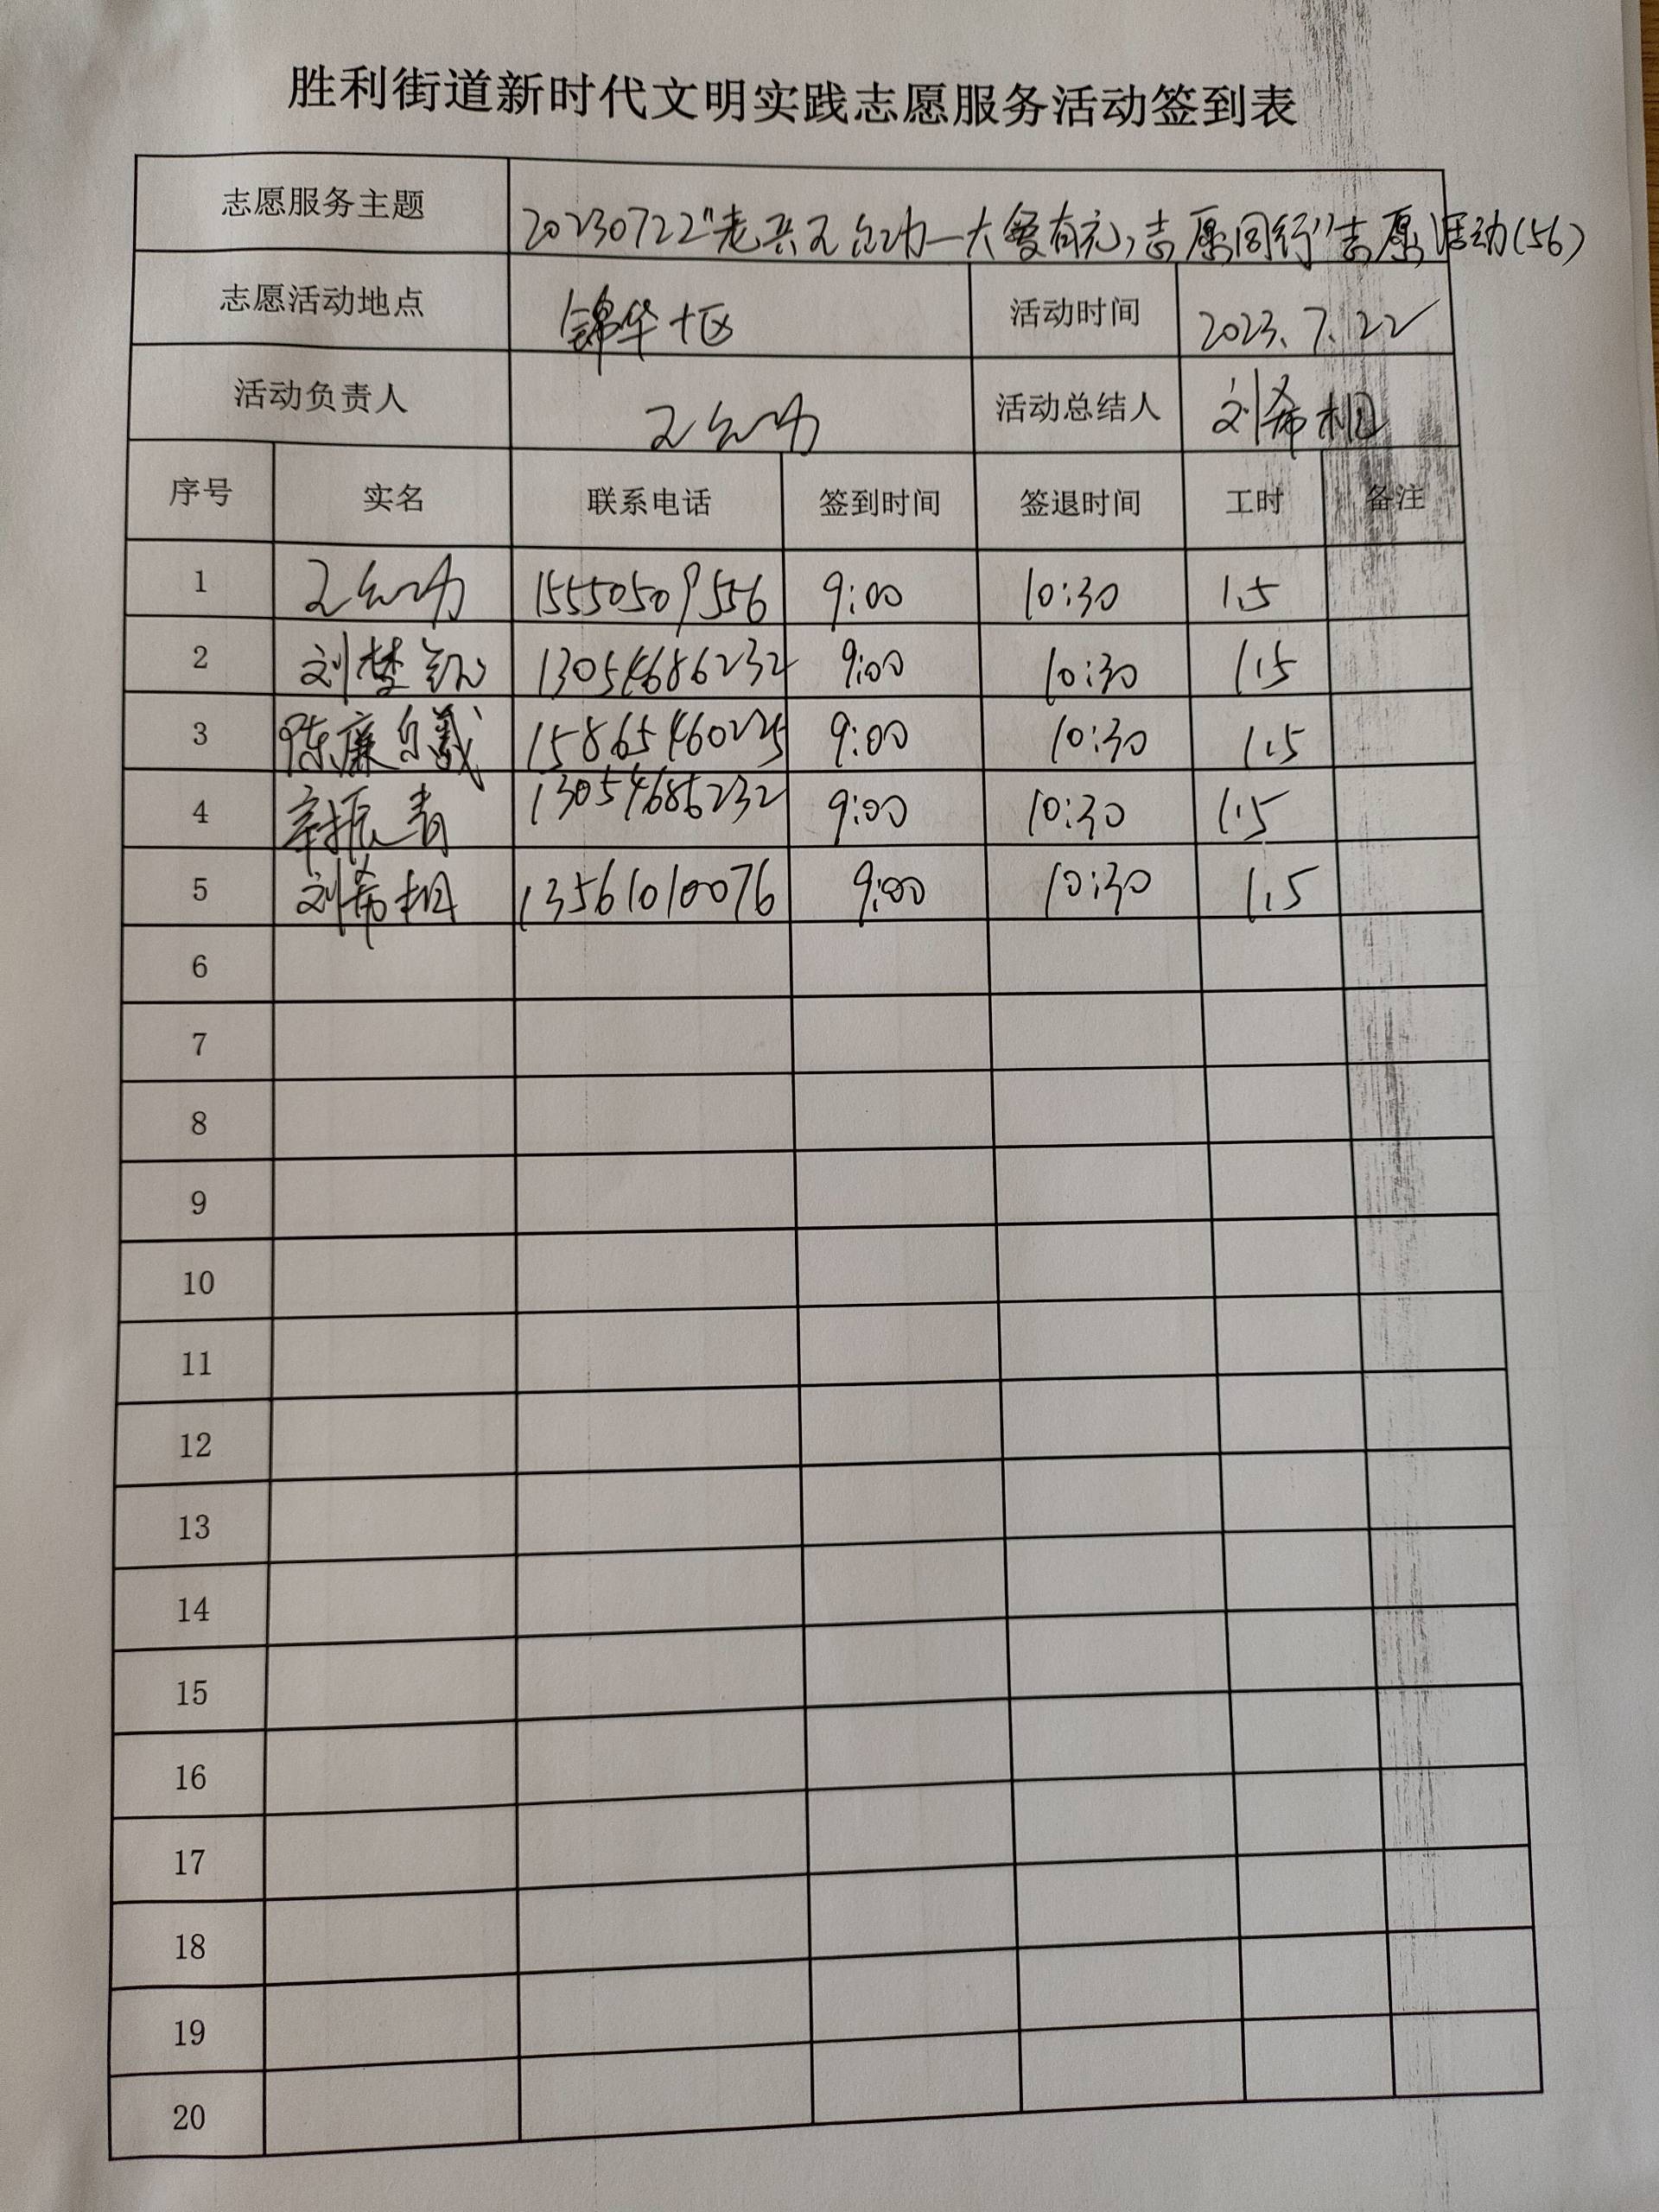 胜利街道新时代文明实践志愿服务活动签到表
志愿服务主题 20230722"老兵王允功—大爱有光,志愿同行"志愿活动(56)
志愿活动地点 锦华十区 活动时间 2023.7.22
活动负责人 王允功 活动总结人 刘希相
序号 实名 联系电话 签到时间 签退时间 工时 备注
1 王允功 15550509556 9:00 10:30 1.5
2 刘楚 13054686232 9:00 10:30 1.5
3 陈廉 15865460225 9:00 10:30 1.5
4 辛振青 13054686232 9:00 10:30 1.5
5 刘希相 13561010076 9:00 10:30 1.5
6
7
8
9
10
11
12
13
14
15
16
17
18
19
20